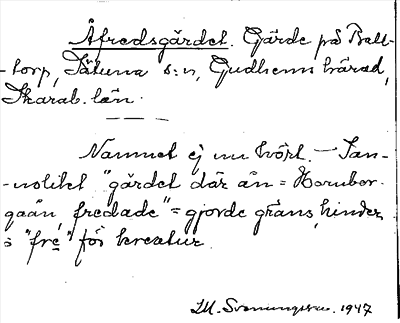 Åfredsgärdet. Gärde på Ball-
-torp, Sätuna s:n, Gudhems härad,
Skarab. län.
Namnet ej nu hört. - San-
-nolikt "gärdet där ån = Hornbor-
gaån, fredade" = gjorde gräns, hinder,
"fre" för kreatur.
M. Svenungsson. 1947